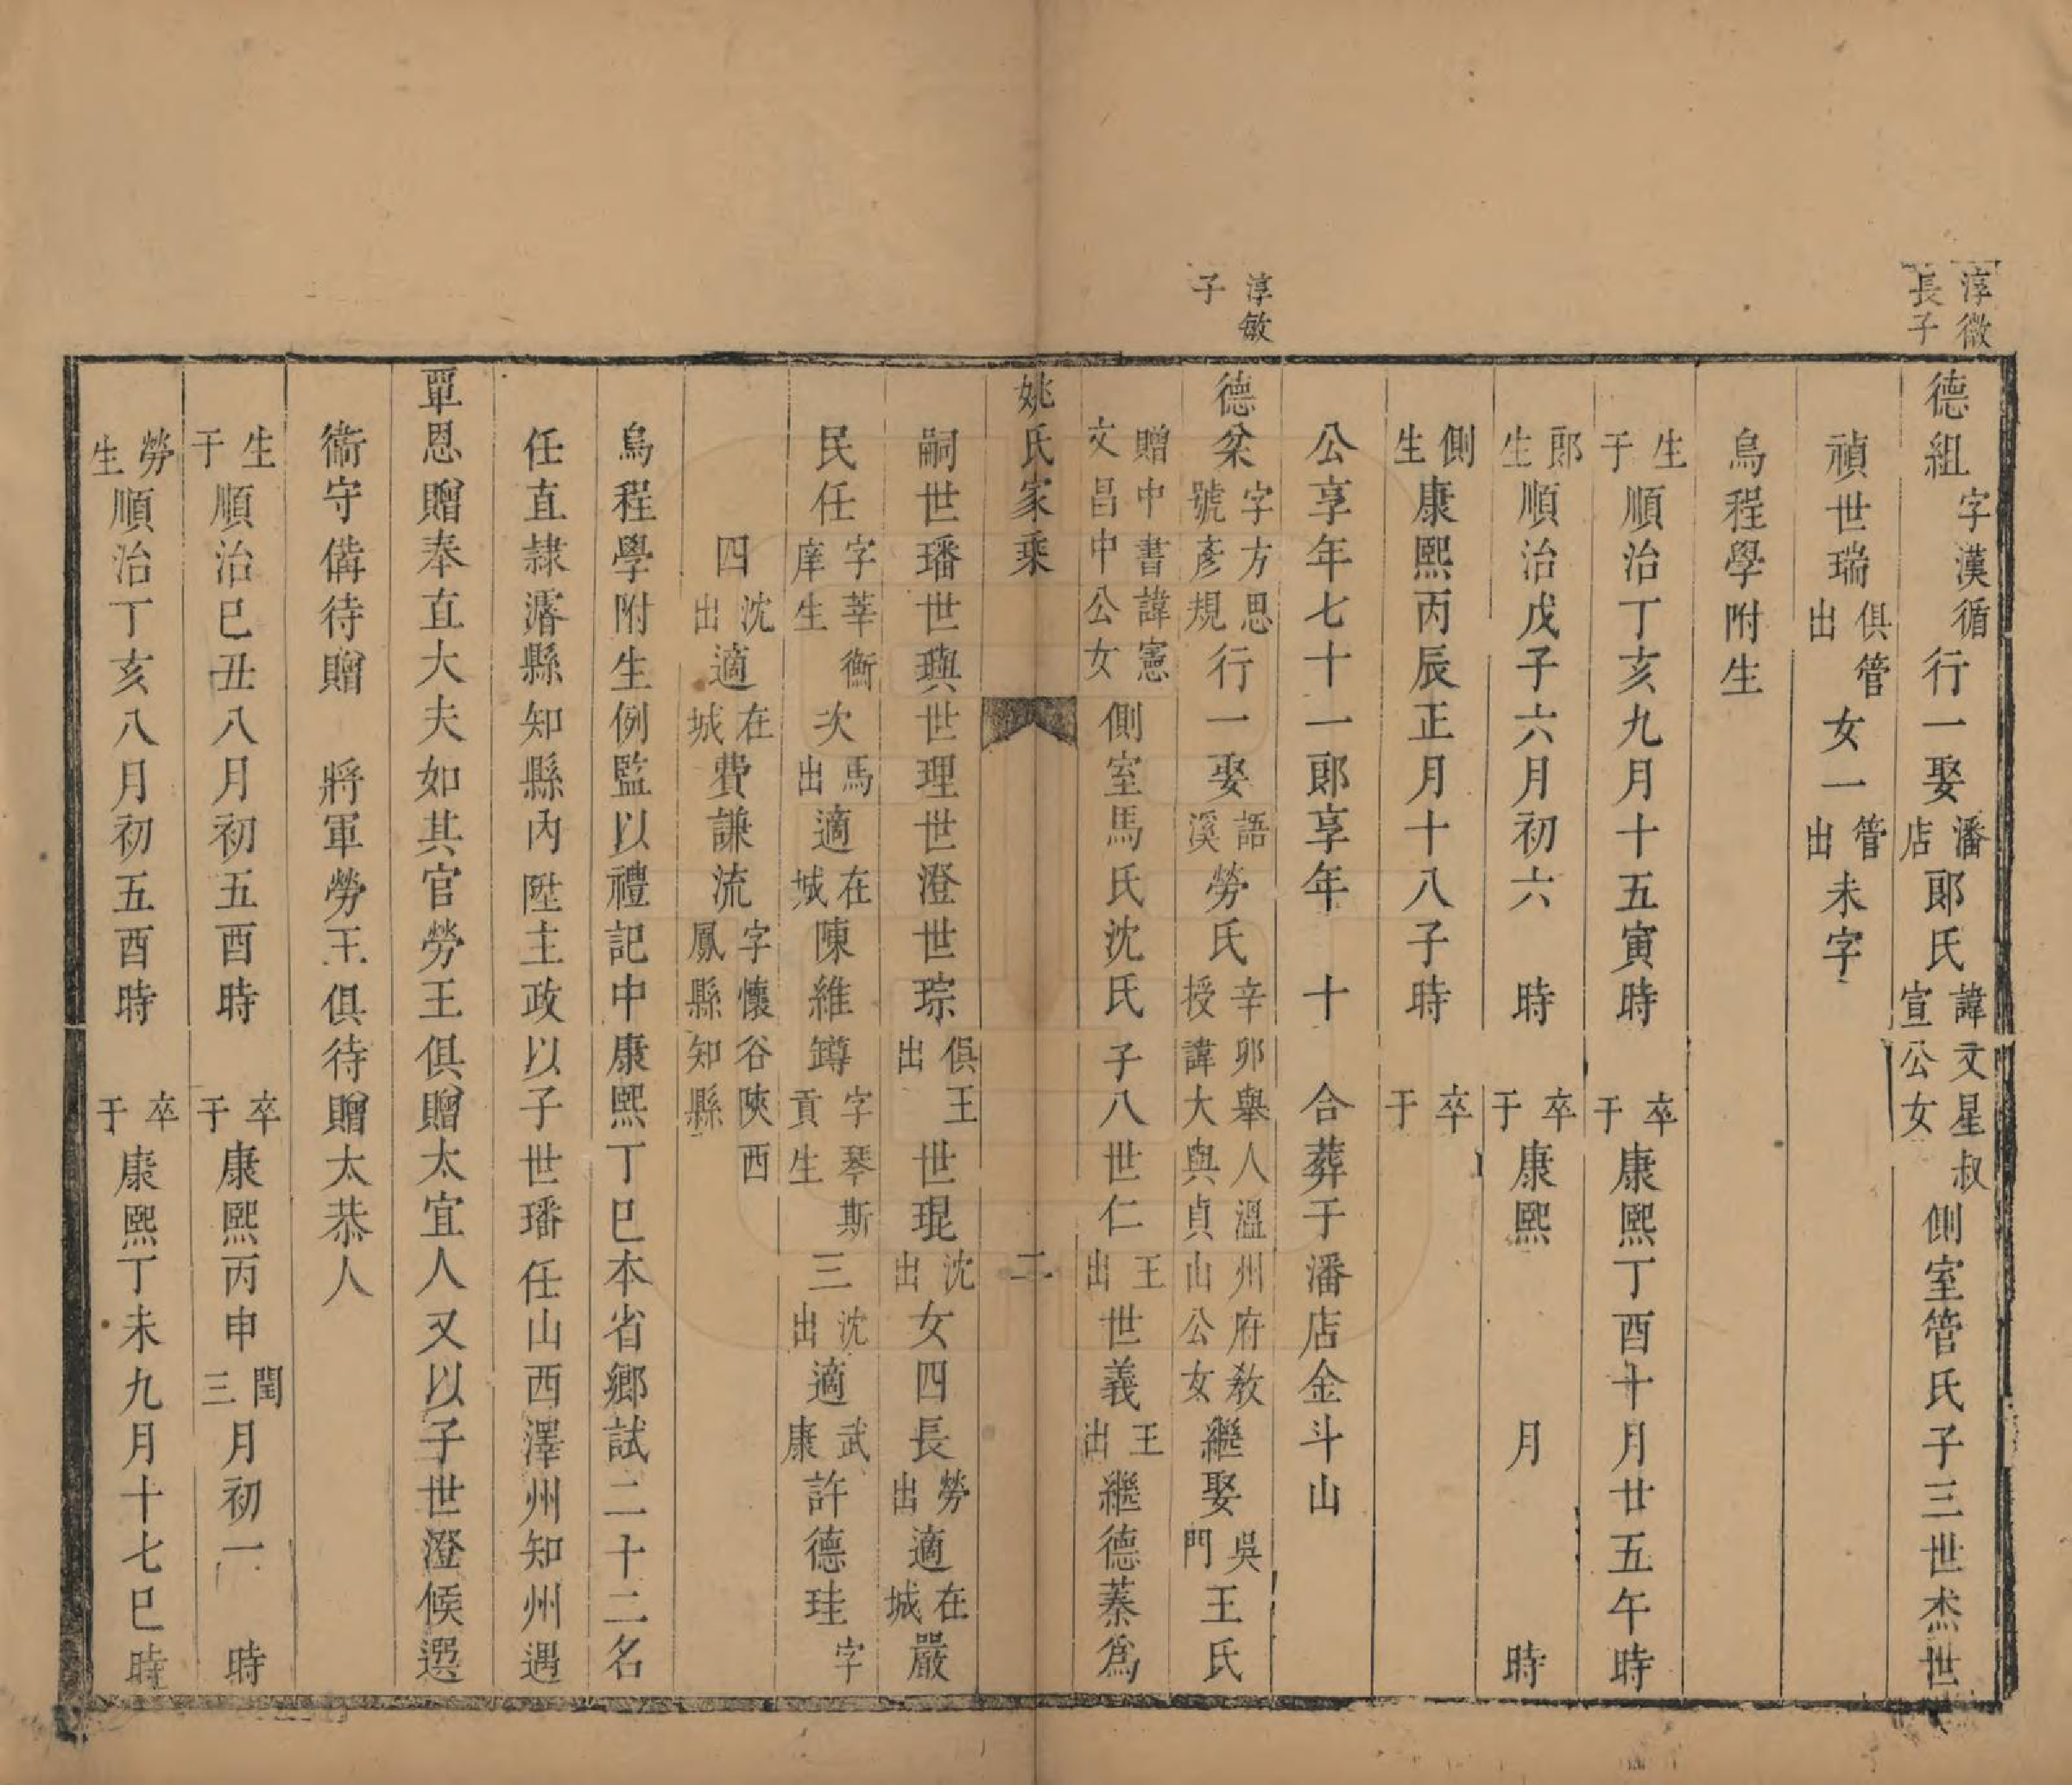 淳徵長子
德組字漢循行一娶潘店郎氏諱文星叔宣公女側室管氏子三世杰世
禎世瑞俱管出女一管出未字
烏程學附生
生于順治丁亥九月十五寅時 卒于康熙丁酉十月廿五午時
郎生順治戊子六月初六 時 卒于康熙 月 時
側生康熙丙辰正月十八子時 卒于
公享年七十一郎享年 十 合葬于潘店金斗山
淳敏子
德棻字方思號彥規行一娶語溪勞氏辛卯舉人溫州府教授諱大與貞山公女繼娶吳門王氏
贈中書諱憲文昌中公女側室馬氏沈氏子八世仁王出世義王出繼德蓁爲
姚氏家乘 二
嗣世璠世璵世理世澄世琮俱王出世琨沈出女四長勞出適在城嚴
民任字莘衡庠生次馬出適在城陳維鐏字琴斯貢生三沈出適武康許德珪字
四沈出適在城費謙流字懷谷陝西鳳縣知縣
烏程學附生例監以禮記中康熙丁巳本省鄉試二十二名
任直隸濬縣知縣內陞主政以子世璠任山西澤州知州遇
覃恩贈奉直大夫如其官勞王俱贈太宜人又以子世澄候選
衞守備待贈 將軍勞王俱待贈太恭人
生于順治己丑八月初五酉時 卒于康熙丙申閏三月初一 時
勞生順治丁亥八月初五酉時 卒于康熙丁未九月十七巳時